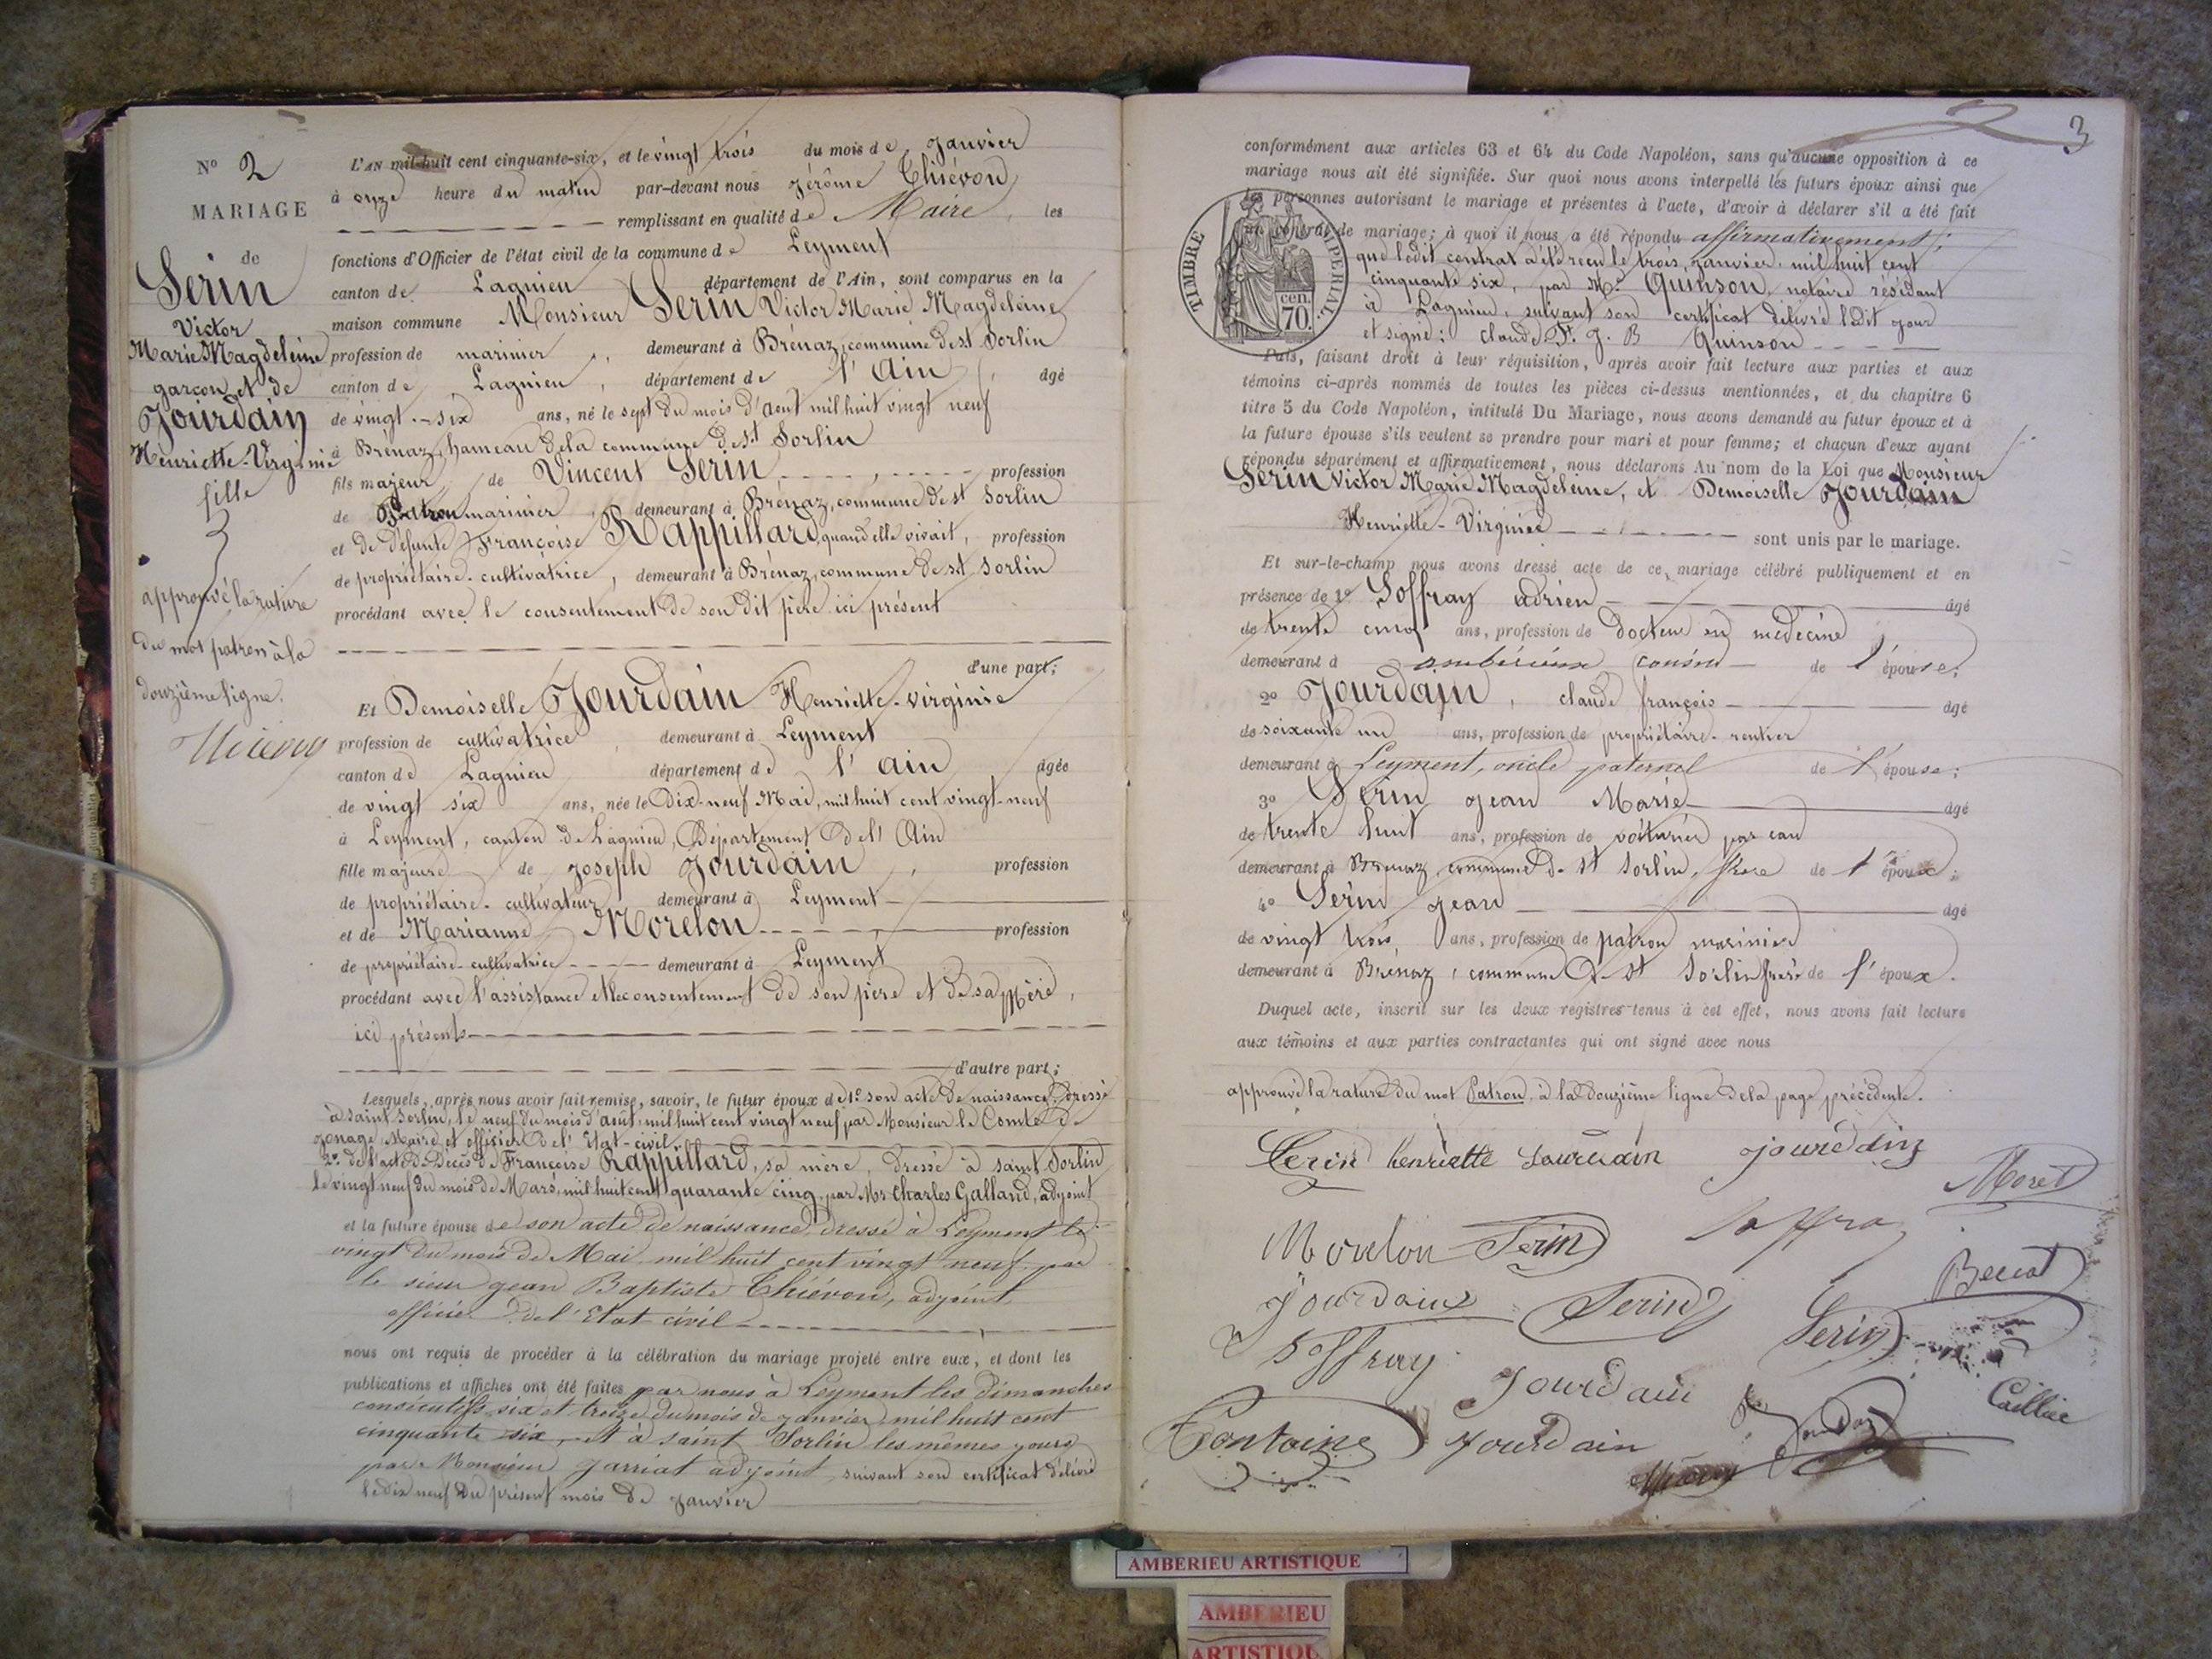 N° 2
MARIAGE
de
Serin
Victor
Marie Magdeleine
garçon et de
Jourdain
Henriette-Virginie
fille
approuvé la rature
du mot patron à la
douzième ligne.
L'AN mil huit cent cinquante-six, et le vingt trois du mois de Janvier
à onze heure du matin par-devant nous Jérôme Thiévon
remplissant en qualité de Maire, les
fonctions d'Officier de l'état civil de la commune de Leyment
canton de Lagnieu département de l'Ain, sont comparus en la
maison commune Monsieur Serin Victor Marie Magdeleine
profession de marinier, demeurant à Brénaz, commune de st Sorlin
canton de Lagnieu, département de l'Ain, âgé
de vingt-six ans, né le sept du mois d'aout mil huit vingt neuf
à Brénaz, hameau de la commune de st Sorlin
fils majeur de Vincent Serin profession
de Patron marinier, demeurant à Brénaz, commune de st Sorlin
et de défunte Françoise Rappillard, quand elle vivait, profession
de propriétaire-cultivatrice, demeurant à Brénaz, commune de st Sorlin
procédant avec le consentement de son dit père ici présent
d'une part;
Et Demoiselle Jourdain Henriette-Virginie
profession de cultivatrice, demeurant à Leyment
canton de Lagnieu département de l'Ain âgée
de vingt six ans, née le Dix-neuf Mai, mil huit cent vingt-neuf
à Leyment, canton de Lagnieu, Département de l'Ain
fille majeure de Joseph Jourdain, profession
de propriétaire-cultivateur demeurant à Leyment
et de Marianne Morelon profession
de propriétaire-cultivatrice demeurant à Leyment
procédant avec l'assistance et le consentement de son père et de sa Mère,
ici présents
d'autre part;
Lesquels, après nous avoir fait remise, savoir, le futur époux de 1° son acte de naissance, dressé
à saint Sorlin, le neuf du mois d'août, mil huit cent vingt neuf par Monsieur le Comte de
Jonage, Maire et officier de l'Etat-civil
2° de l'acte de Décès de Françoise Rappillard, sa mère, dressé à saint Sorlin
le vingt neuf du mois de Mars, mil huit cent quarante cinq, par Mr Charles Galland, adjoint
et la future épouse de son acte de naissance, dressé à Leyment le
vingt du mois de Mai, mil huit cent vingt neuf, par
le sieur Jean Baptiste Thiévon, adjoint
officier de l'Etat civil
nous ont requis de procéder à la célébration du mariage projeté entre eux, et dont les
publications et affiches ont été faites par nous à Leyment les dimanches
consécutifs six et treize du mois de janvier mil huit cent
cinquante six, et à saint Sorlin les mêmes jours
par Monsieur Jarriat adjoint, suivant son certificat délivré
le dix neuf du présent mois de Janvier
3
conformément aux articles 63 et 64 du Code Napoléon, sans qu'aucune opposition à ce
mariage nous ait été signifiée. Sur quoi nous avons interpellé les futurs époux ainsi que
les personnes autorisant le mariage et présentes à l'acte, d'avoir à déclarer s'il a été fait
un contrat de mariage; à quoi il nous a été répondu affirmativement;
que ledit contrat a été reçu le trois, janvier, mil huit cent
cinquante six, par Me Quinson, notaire résidant
à Lagnieu, suivant son certificat délivré ledit jour
et signé: Claude F. J. B Quinson
TIMBRE IMPERIAL
cen.
70.
Puis, faisant droit à leur réquisition, après avoir fait lecture aux parties et aux
témoins ci-après nommés de toutes les pièces ci-dessus mentionnées, et du chapitre 6
titre 5 du Code Napoléon, intitulé Du Mariage, nous avons demandé au futur époux et à
la future épouse s'ils veulent se prendre pour mari et pour femme; et chacun d'eux ayant
répondu séparément et affirmativement, nous déclarons Au nom de la Loi que Monsieur
Serin Victor Marie Magdeleine, et Demoiselle Jourdain
Henriette-Virginie sont unis par le mariage.
Et sur-le-champ nous avons dressé acte de ce mariage célébré publiquement et en
présence de 1° Soffray adrien âgé
de trente cinq ans, profession de Docteur en médecine
demeurant à ambérieux cousin de l'épouse;
2° Jourdain, claude françois âgé
de soixante un ans, profession de propriétaire-rentier
demeurant à Leyment, oncle paternel de l'épouse;
3° Serin Jean Marie âgé
de trente huit ans, profession de voiturier par eau
demeurant à Brénaz commune de st Sorlin, frère de l'époux;
4° Serin Jean âgé
de vingt trois, ans, profession de patron marinier
demeurant à Brénaz, commune de st Sorlin frère de l'époux.
Duquel acte, inscrit sur les deux registres tenus à cet effet, nous avons fait lecture
aux témoins et aux parties contractantes qui ont signé avec nous
approuvé la rature du mot Patron, à la Douzième ligne de la page précédente.
Serin henriette Jourdain Jourdain
Moret
Morelon Serin
Beccat
Jourdain Serin Serin
Soffray Jourdain
Caillat
Fontaine Jourdain
AMBERIEU ARTISTIQUE
AMBERIEU
ARTISTIQU